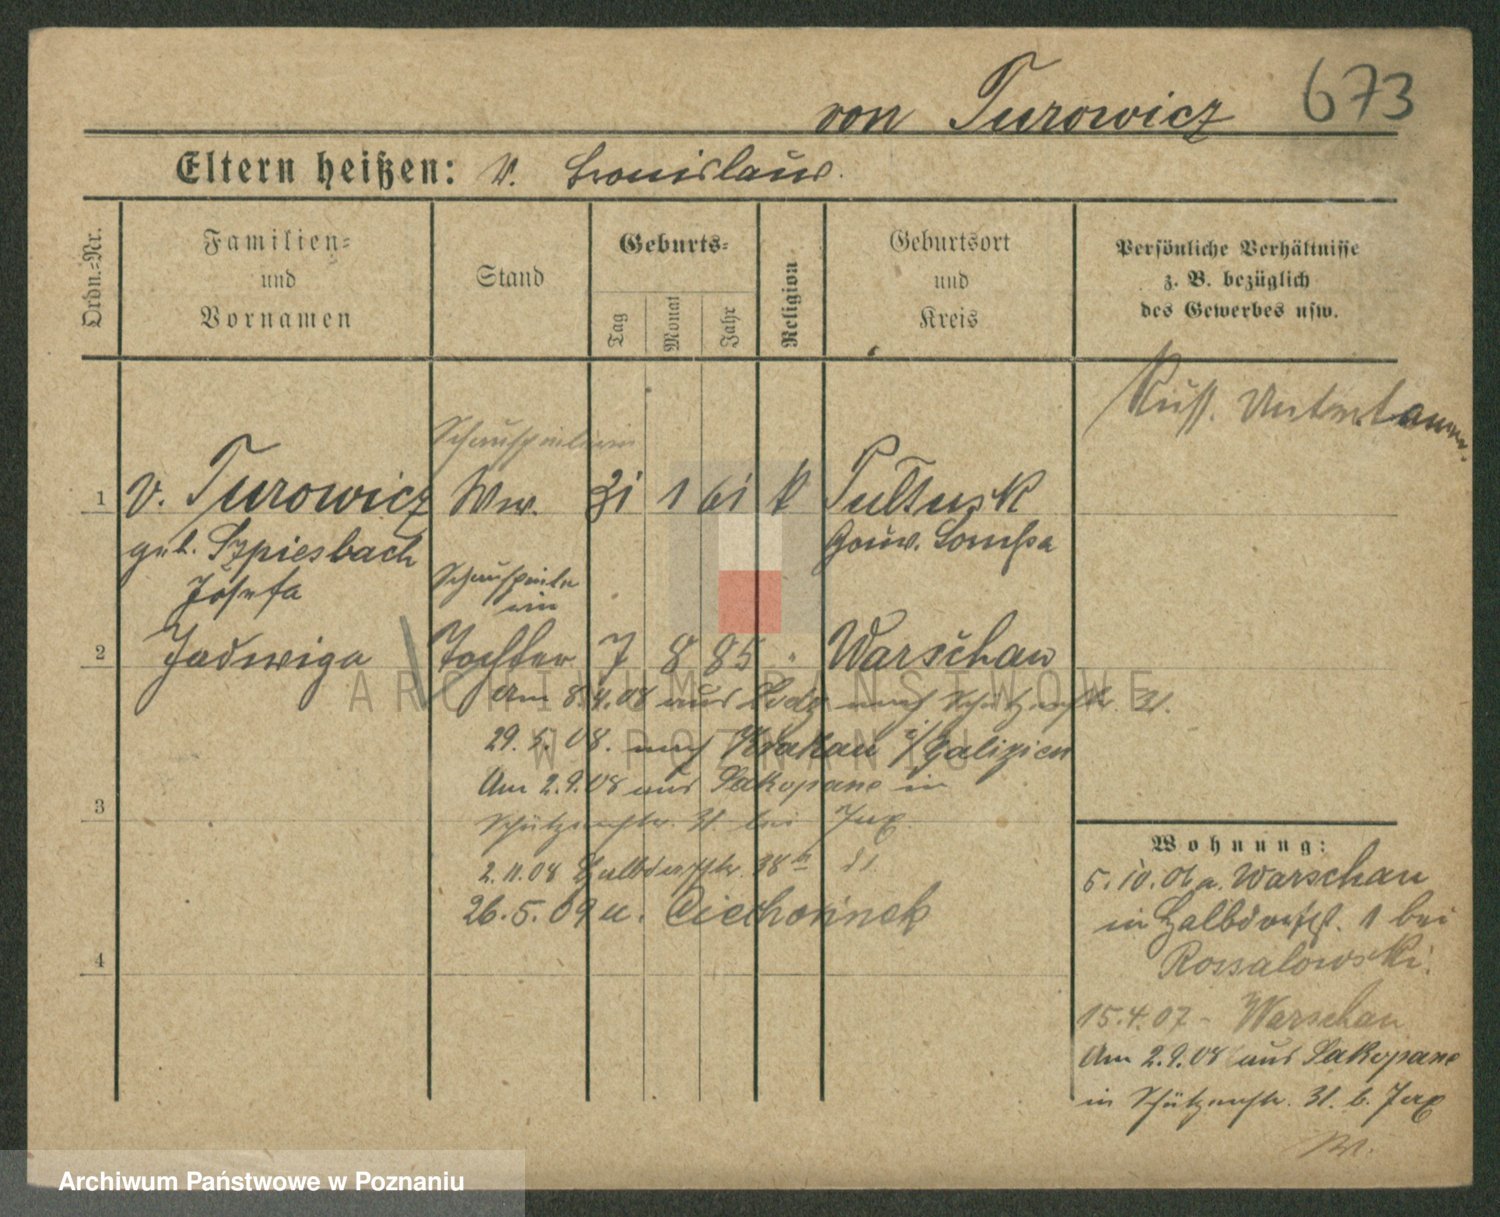 673
von Turowicz
Eltern heißen: V. Bronislaus.
Ordn.-Nr.
Familien-
und
Vornamen
Stand
Geburts-
Tag
Monat
Jahr
Religion
Geburtsort
und
Kreis
Persönliche Verhältnisse
z. B. bezüglich
des Gewerbes usw.
Russ. Untertanin.
Schauspielerin
1 v. Turowicz Ww. 31 1 61 k Pultusk
geb. Szpiesbach Gouv. Lomza
Josefa
Schauspieler
in
2 Jadwiga Tochter 7 8 85 " Warschau
Am 8.4.08 aus Lodz nach Schützenstr. 31.
29.5.08. nach Krakau i/Galizien
Am 2.9.08 aus Zakopane in
3
Schützenstr. 31 bei Jux.
2.11.08 Halbdorfstr.
26.5.09 n. Ciechocinek
4
Wohnung:
5.10.06 a. Warschau
in Halbdorfst. 1 bei
Rossalowski.
15.4.07 - Warschau
Am 2.9.08 aus Zakopane
in Schützenstr. 31. b. Jux
ARCHIWUM PAŃSTWOWE
W POZNANIU
Archiwum Państwowe w Poznaniu